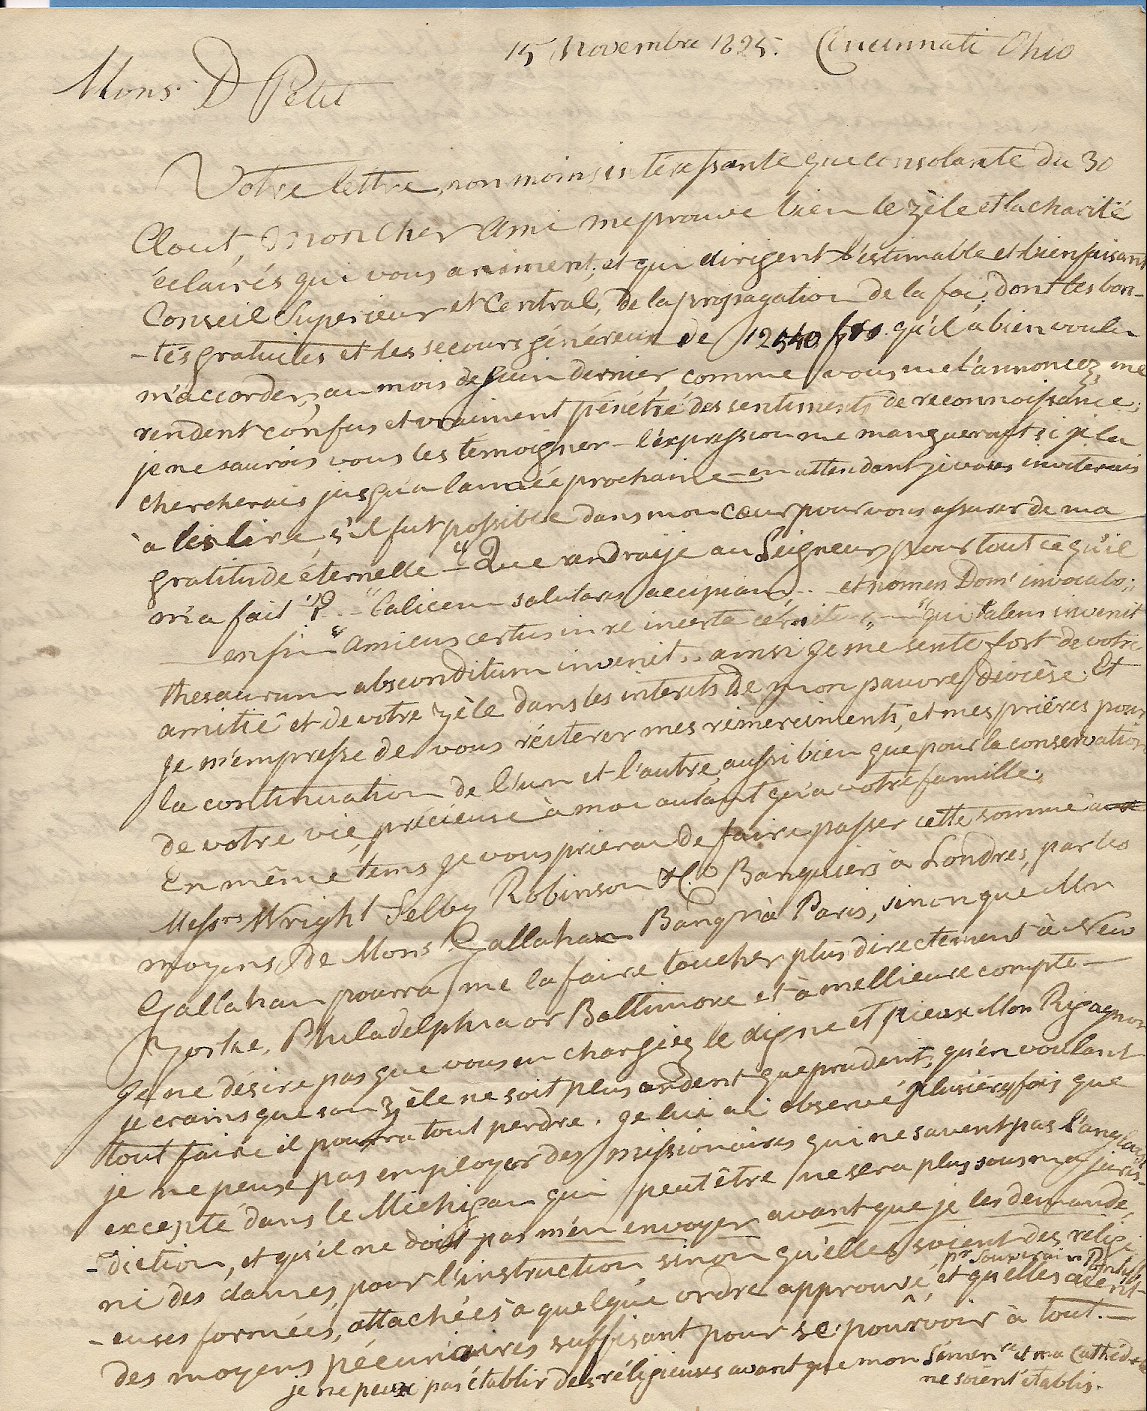 15 Novembre 1825. Cincinnati Ohio
Mons. D Petit
Votre lettre, non moins intéressante que consolante du 30
Aout, Mon Cher Ami me prouve bien le zèle et la charité
éclairés qui vous animent, et qui dirigent l'estimable et bienfaisant
Conseil Superieur et Central, de la propagation de la foi, dont les bon-
-tés gratuites et les secours généreux de 12540 frs. qu'il a bien voulu
m'accorder, au mois de Juin dernier, comme vous me l'annoncez, me
rendent confus et vraiment pénétré des sentiments de reconnoissance;
je ne saurois vous les temoigner - l'expression me manqueroit si je la
chercherais jusqu'a l'année prochaine - en attendant je vous inviterais
à les lire, s'il fut possible dans mon coeur pour vous assurer de ma
gratitude éternelle - "Que rendraije au Seigneur pour tout ce qu'il
m'a fait"? - "Calicem salutaris accipiam, .. et nomen Domi invocabo;
enfin "Amicus certus in re incerta cernitur, - "qui talem invenit
thesaurum absconditum invenit.. ainsi je me sente fort de votre
amitié et de votre zèle dans les interets de mon pauvre Diocèse. Et
je m'empresse de vous réiterer mes remerciments, et mes prières pour
la continuation de l'un et l'autre, aussi bien que pour la conservation
de votre vie, précieuse à moi autant qu'a votre famille.
En même tems je vous prierai de faire passer cette somme a
Messrs Wright Selby Robinson & Co Banquiers à Londres, par les
moyens de Mons Gallahan Banqr à Paris, sinon que Mon
Gallahan pourra me la faire toucher plus directement à New
Yorke, Philadelphia or Baltimore et à mellieure compte -
Je ne désire pas que vous en chargiez le digne et pieux Mon Rigagnon
je crains que son zèle ne soit plus ardent que prudent, qu'en voulant
tout faire il pourra tout perdre. je lui ai observé plusieurs fois que
je ne peux pas employer des missionaires qui ne savent pas l'anglais
excepté dans le Michigan qui peut être ne sera plus sous ma juris-
-diction, et qu'il ne doit pas m'en envoyer avant que je les demande,
ni des dames, pour l'instruction sinon qu'elles soient des religi-
-euses formées, attachées à quelque ordre approuvé, pr Souverain Pontife et qu'elles aient
des moyens pécuniaires suffisant pour se pourvoir à tout. -
je ne peux pas établir des réligieuses avant que mon Séminre et ma Cathédrale
ne soient etablis.